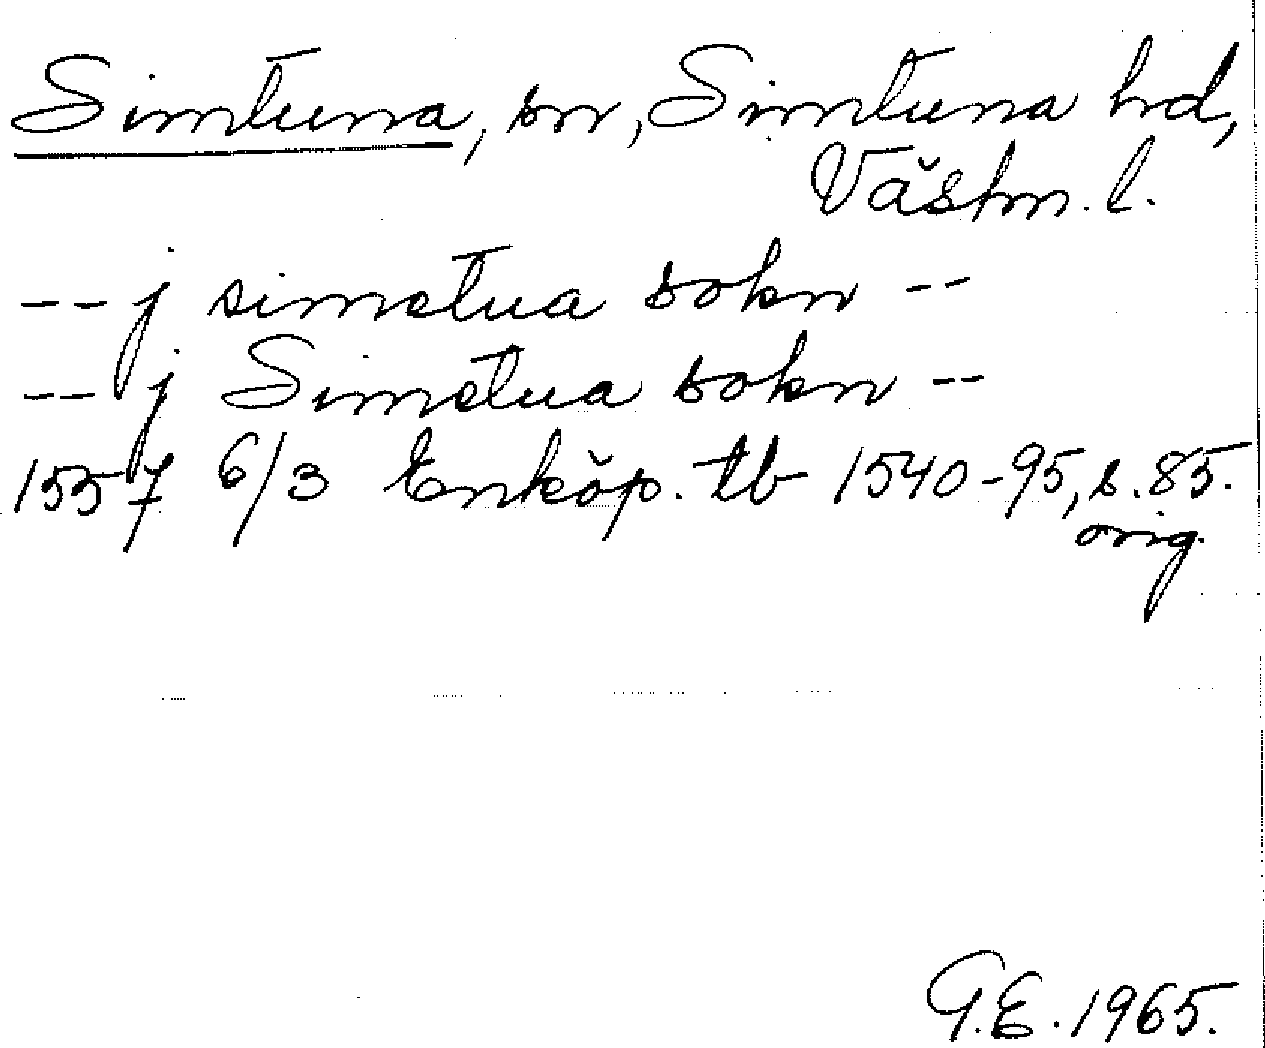 Simtuna, sn, Simtuna hd,
Västm. l.
-- j simetua sokn --
-- j Simetua sokn --
1557 6/3 Enköp. tb 1540-95, s. 85.
orig.
G.E. 1965.